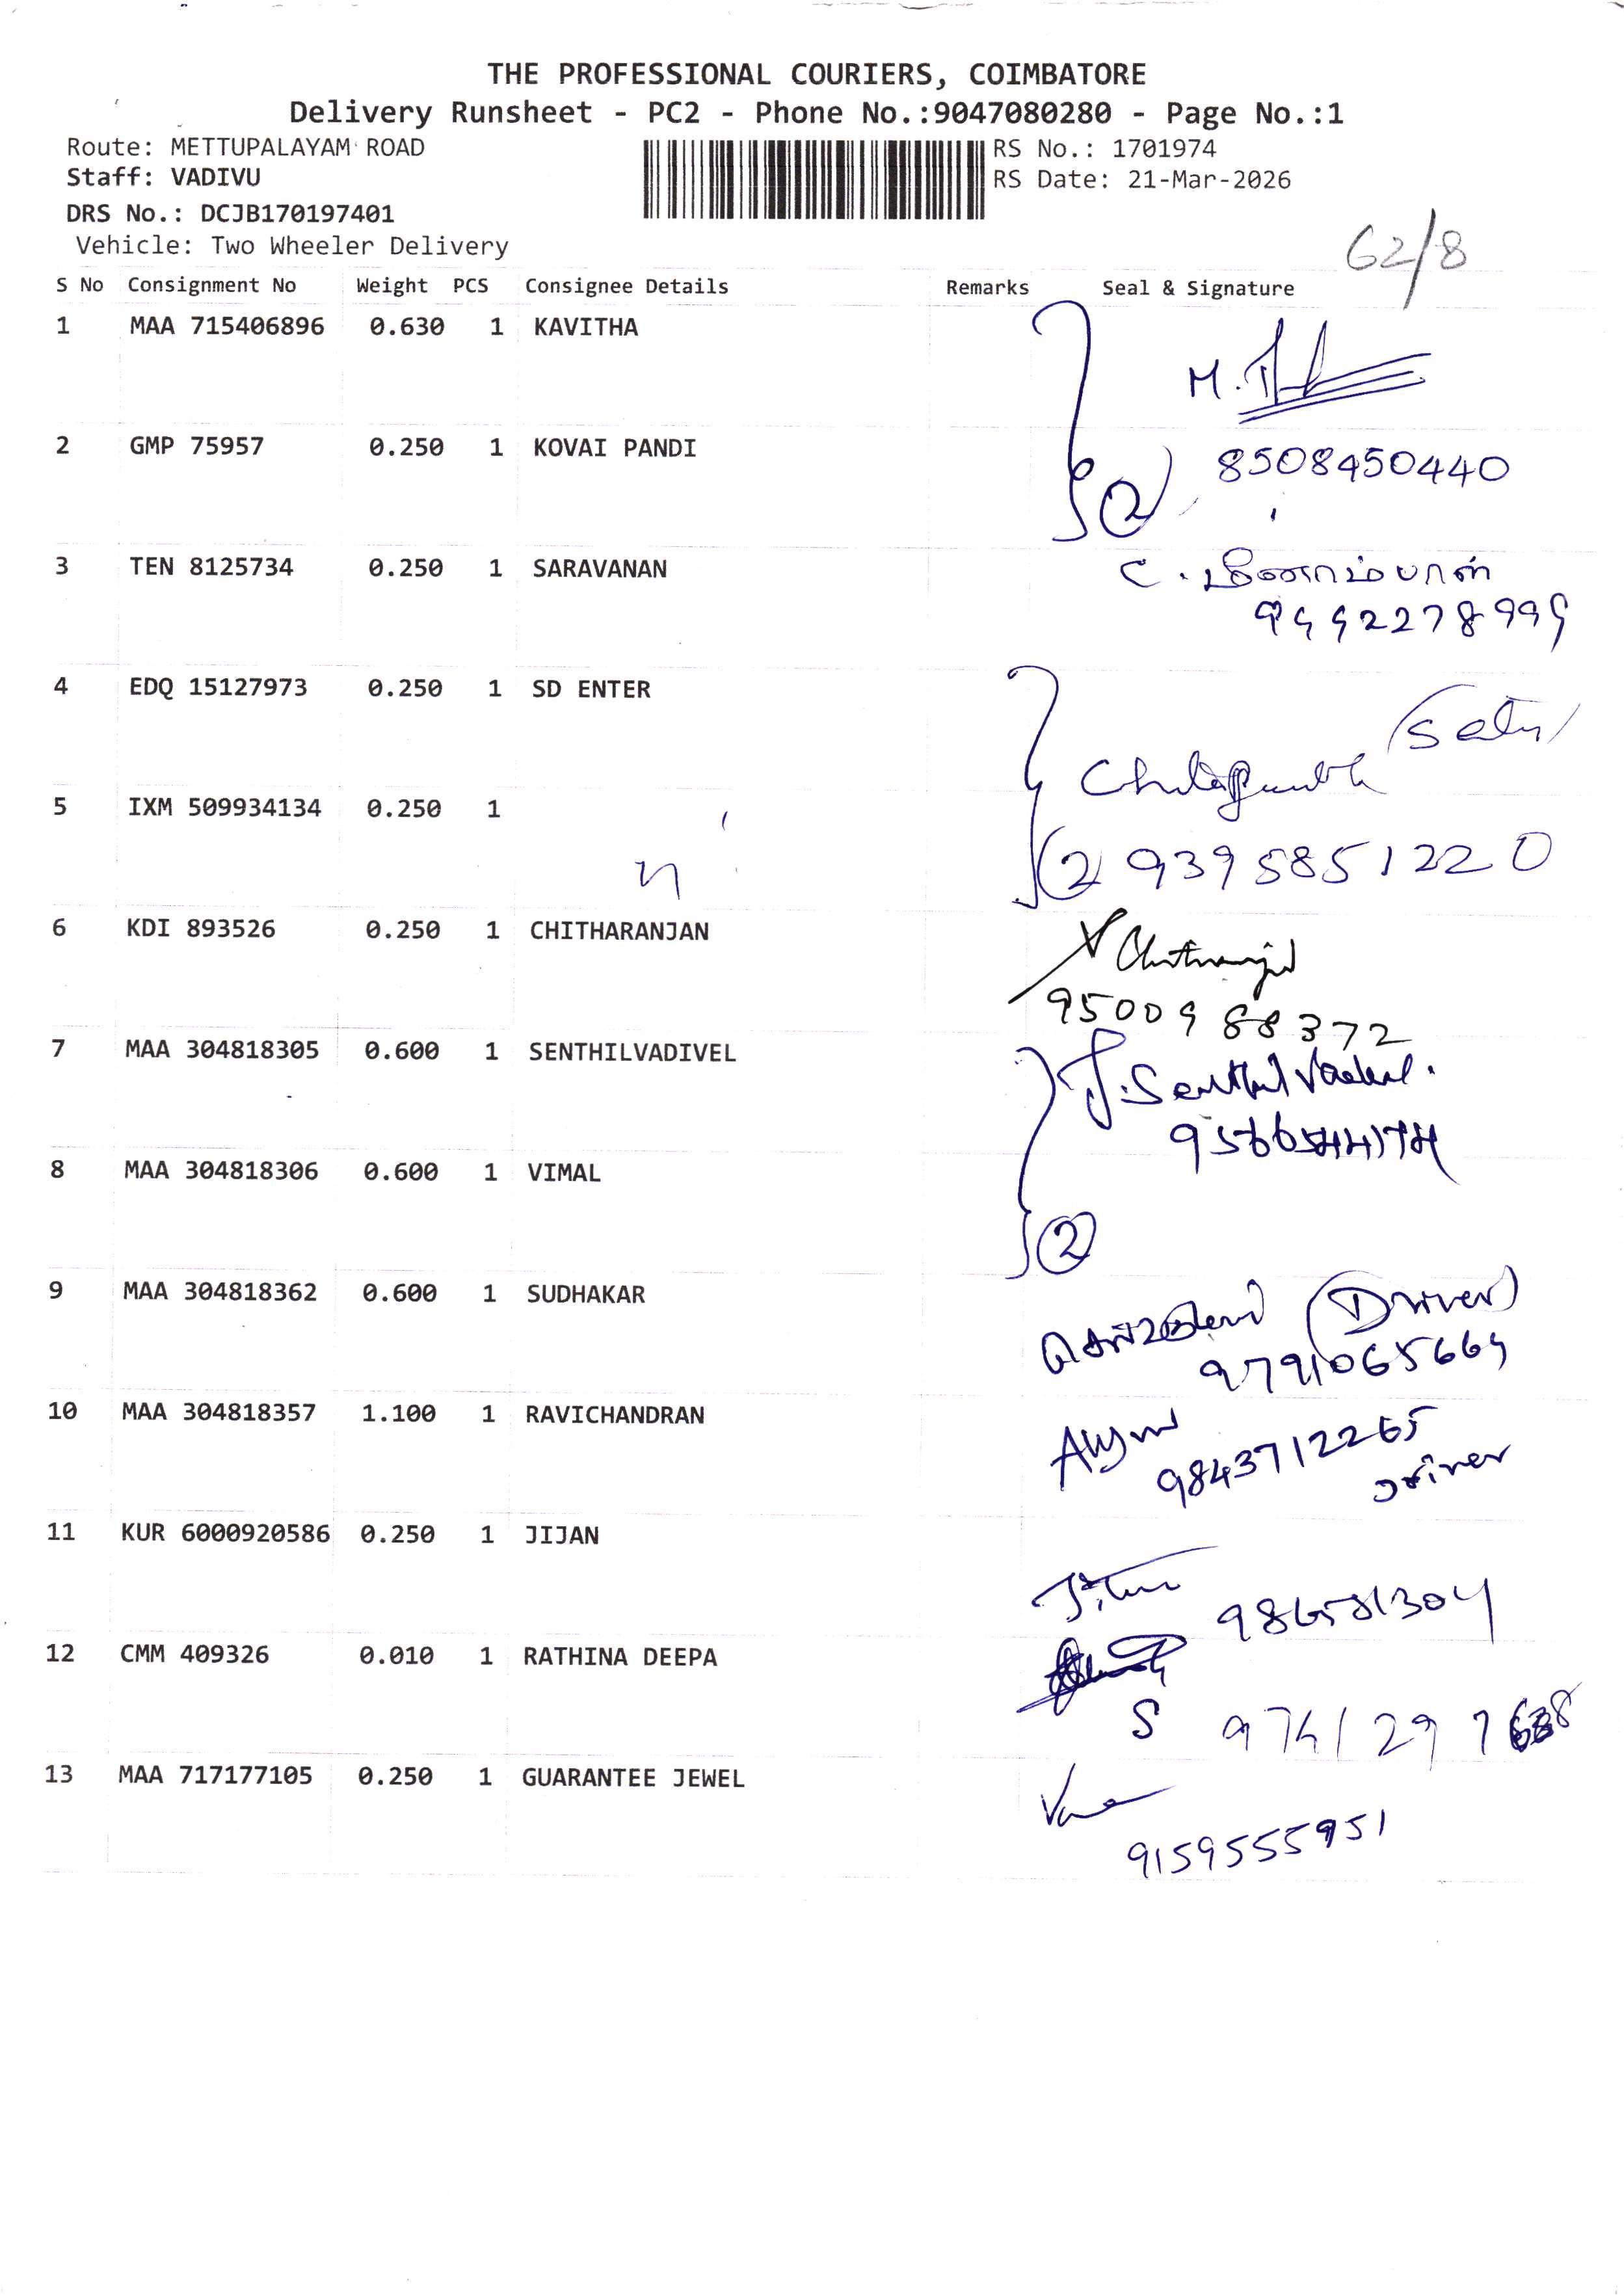 THE PROFESSIONAL COURIERS, COIMBATORE
Delivery Runsheet - PC2 - Phone No.:9047080280 - Page No.:1
Route: METTUPALAYAM ROAD
Staff: VADIVU
DRS No.: DCJB170197401
Vehicle: Two Wheeler Delivery
RS No.: 1701974
RS Date: 21-Mar-2026
62/8
S No Consignment No Weight PCS Consignee Details Remarks Seal & Signature
1 MAA 715406896 0.630 1 KAVITHA
M.
2 GMP 75957 0.250 1 KOVAI PANDI
8508450440
2
3 TEN 8125734 0.250 1 SARAVANAN
9442278999
4 EDQ 15127973 0.250 1 SD ENTER
5 IXM 509934134 0.250 1
2 9395851220
6 KDI 893526 0.250 1 CHITHARANJAN
9500988372
7 MAA 304818305 0.600 1 SENTHILVADIVEL
J. Senthil Vadivel.
8 MAA 304818306 0.600 1 VIMAL
2
9 MAA 304818362 0.600 1 SUDHAKAR
(Driver)
9791065664
10 MAA 304818357 1.100 1 RAVICHANDRAN
9843712265
Driver
11 KUR 6000920586 0.250 1 JIJAN
12 CMM 409326 0.010 1 RATHINA DEEPA
S
13 MAA 717177105 0.250 1 GUARANTEE JEWEL
9159555951